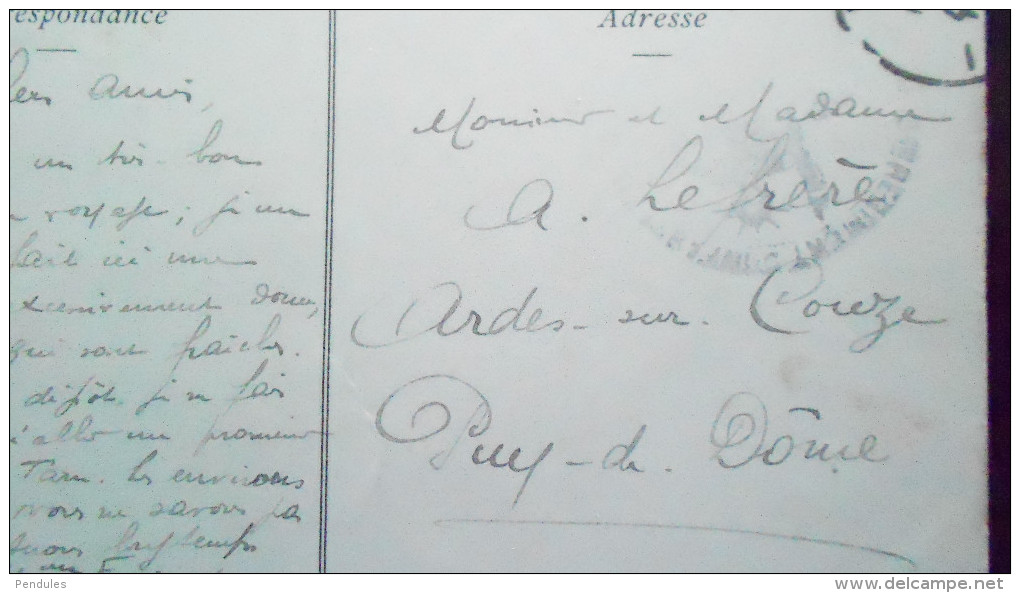 espondance
Adresse
hers amis,
un très bon
voyage; je ne
fait ici une
excessivement douce,
qui sont fraîches.
dépôt. je ne fais
d'aller me promener
Tarn. Les environs
nous ne savons pas
longtemps
Monsieur et Madame
A. Lefrère
Ardes-sur-Couze
Puy-de-Dôme
Pendules
www.delcampe.net